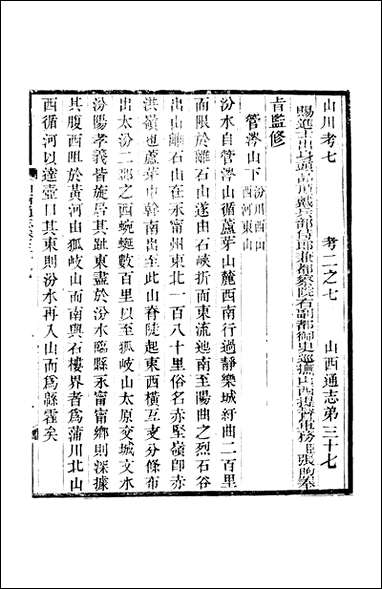 山川考七　考二之七　山西通志第三十七
賜進士出身頭品頂戴兵部侍郎兼都察院右副都御史巡撫山西提督軍務臣張煦奉
旨監修
管涔山下 汾川西山 西河東山
汾水自管涔山循蘆芽山麓西南行過靜樂城紆曲二百里
而限於離石山遂由石峽折而東流迤南至陽曲之烈石谷
出山離石山在永甯州東北一百八十里俗名赤堅嶺卽赤
洪嶺也蘆芽中幹南出至此山脊陡起東西橫亙支分條布
出太汾二郡之西蜿蜒數百里以至狐岐山太原交城文水
汾陽孝義皆旋居其趾東盡於汾水臨縣永甯甯鄉則深據
其腹西阻於黃河由狐岐山而南與石樓界者爲蒲川北山
西循河以達壺口其東則汾水再入山而爲縣霍矣